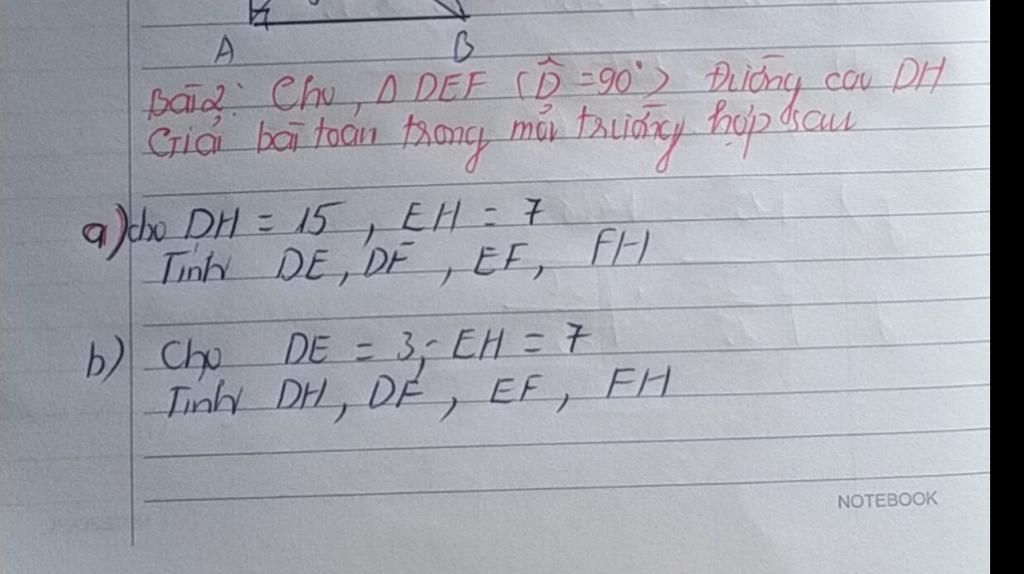 A B
Bài 2: Cho, Δ DEF (D̂ = 90°) Đường cao DH
Giải bài toán trong mỗi trường hợp sau
a) cho DH = 15, EH = 7
Tính DE, DF, EF, FH
b) Cho DE = 3, EH = 7
Tính DH, DF, EF, FH
NOTEBOOK